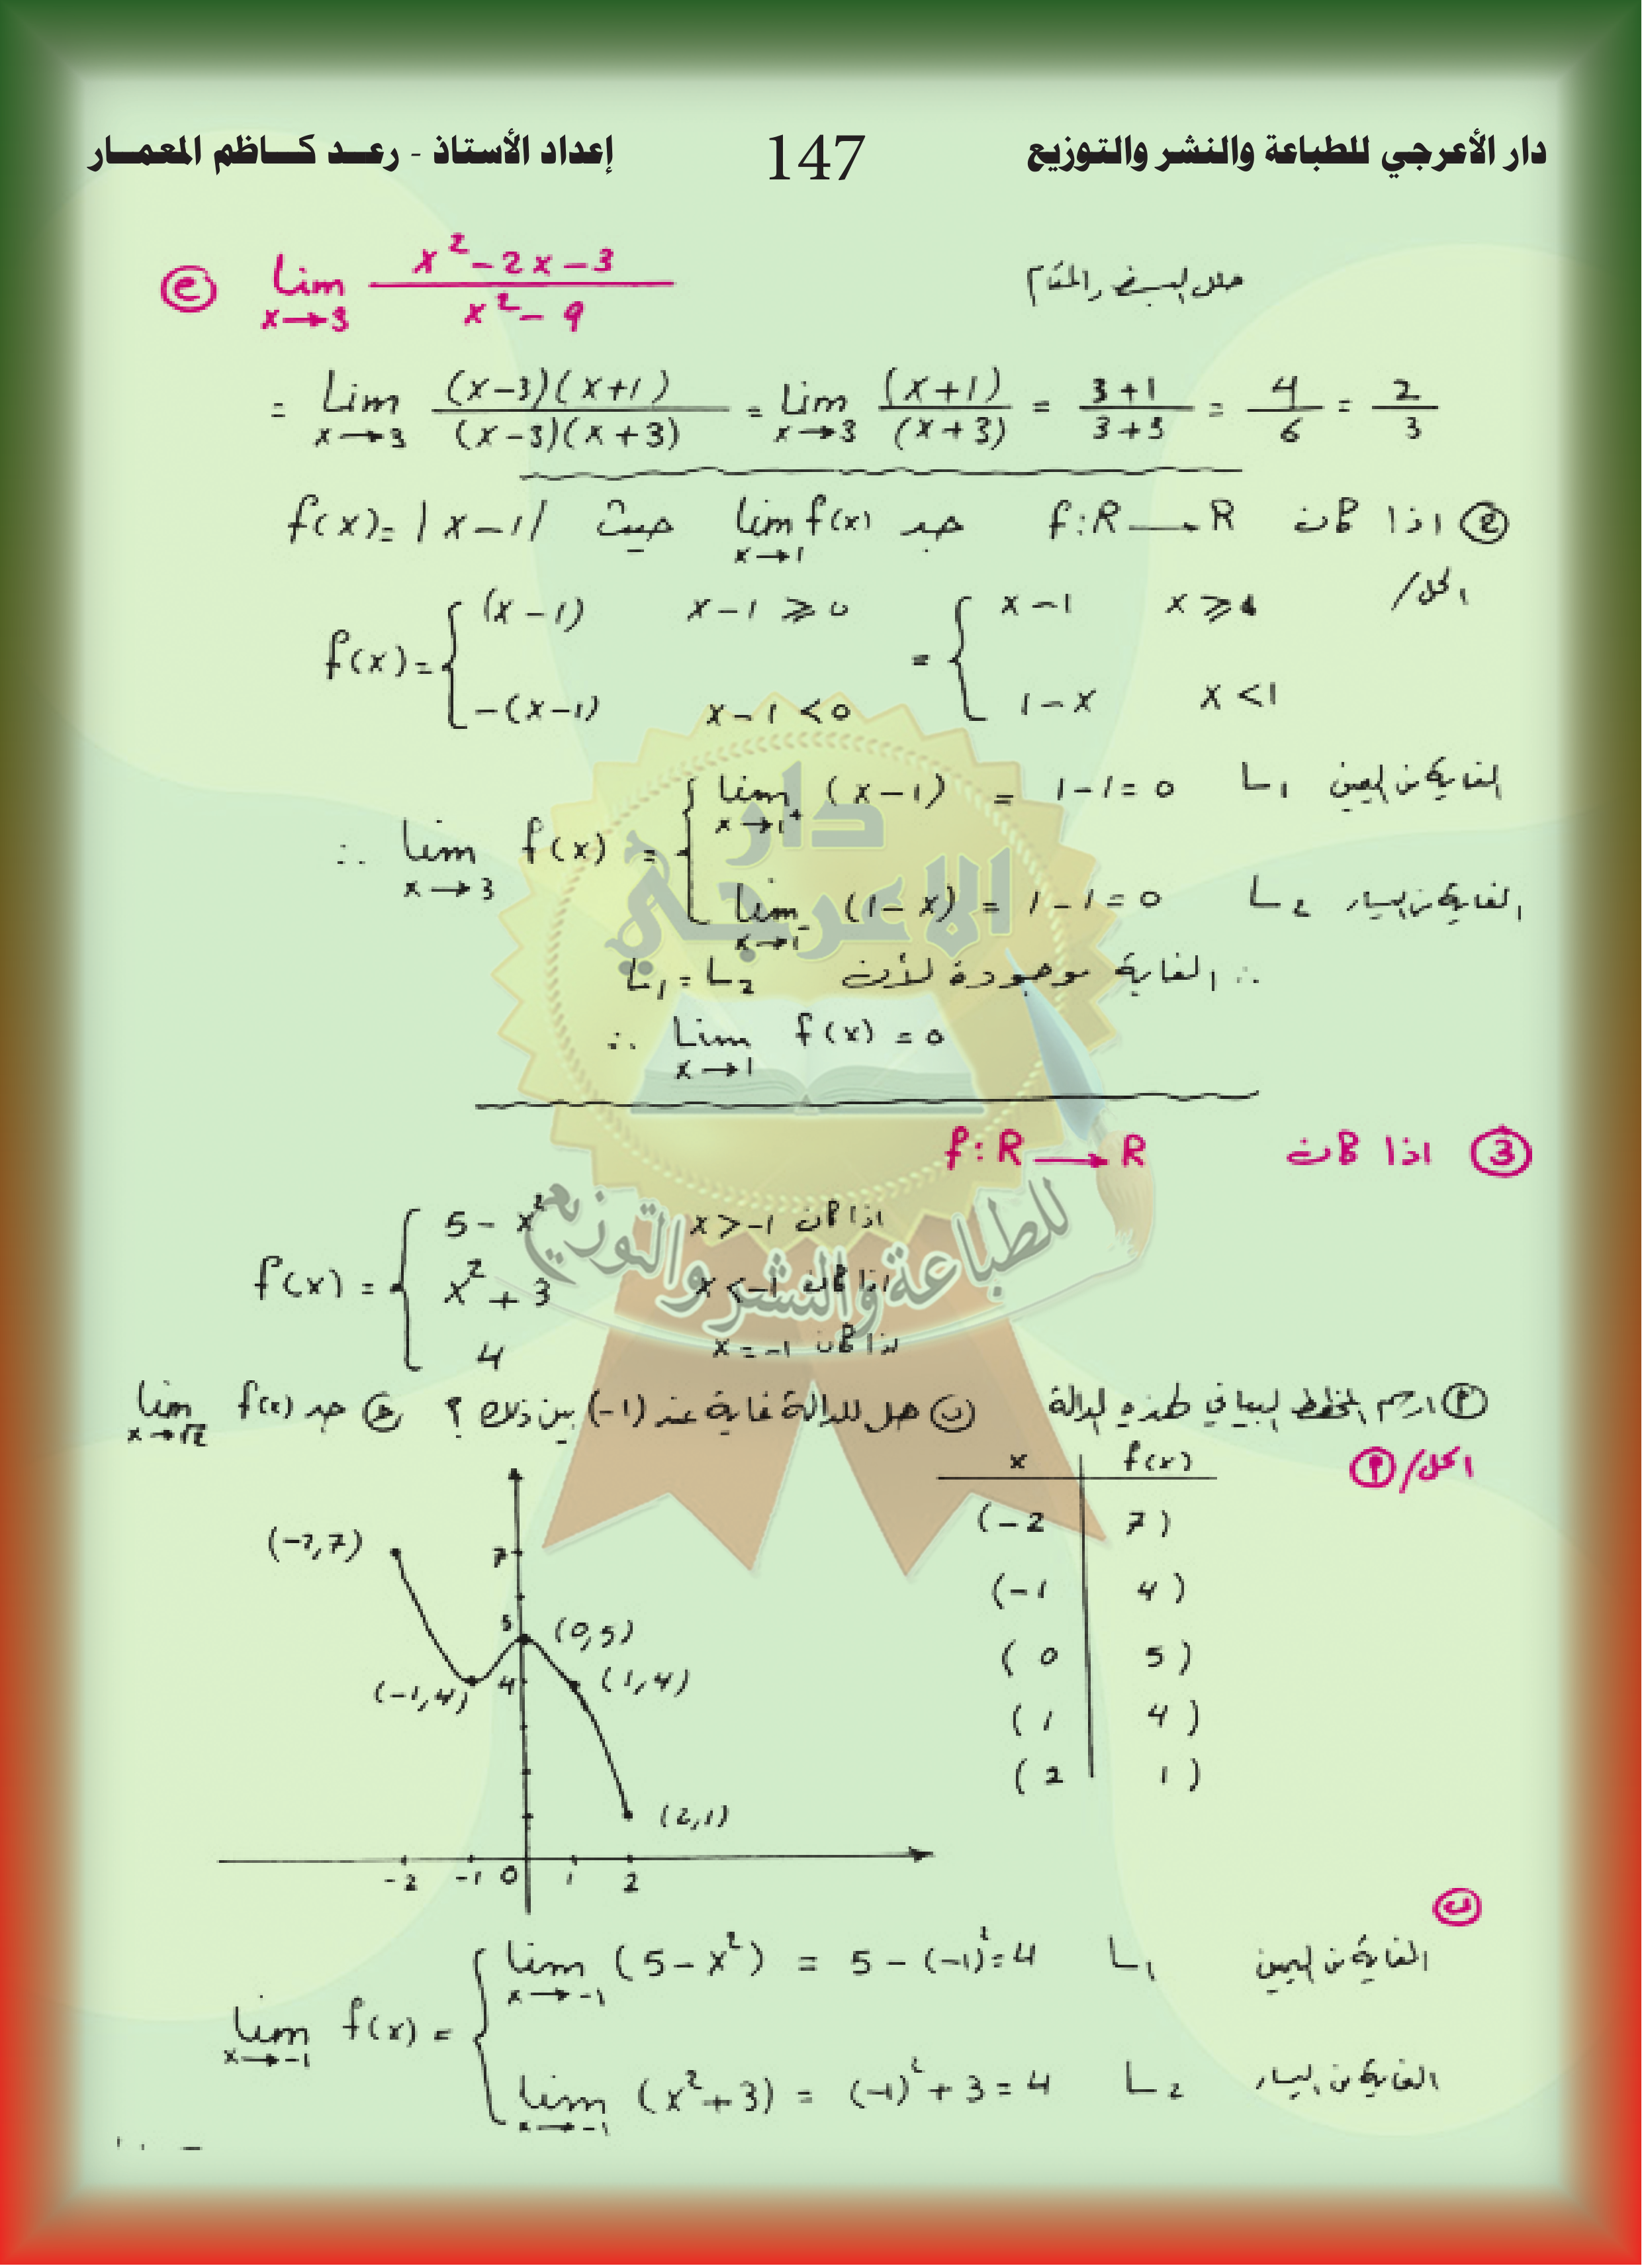 دار الأعرجي للطباعة والنشر والتوزيع 147 إعداد الأستاذ - رعد كاظم المعمار
ⓔ lim x→3 (x² - 2x - 3)/(x² - 9) حلل البسط والمقام
= lim x→3 (x-3)(x+1)/(x-3)(x+3) = lim x→3 (x+1)/(x+3) = (3+1)/(3+3) = 4/6 = 2/3
② اذا كانت f: R → R جد lim x→1 f(x) حيث f(x) = |x-1|
الحل/
f(x) = { (x-1) x-1 ≥ 0 = { x-1 x ≥ 1
-(x-1) x-1 < 0 1-x x < 1
∴ lim x→3 f(x) = { lim x→1⁺ (x-1) = 1-1 = 0 L₁ الغاية من اليمين
lim x→1⁻ (1-x) = 1-1 = 0 L₂ الغاية من اليسار
∴ الغاية موجودة لأن L₁ = L₂
∴ lim x→1 f(x) = 0
③ اذا كانت f: R → R
f(x) = { 5 - x² اذا كان x > -1
x² + 3 اذا كان x < -1
4 اذا كان x = -1
ⓐ ارسم المخطط البياني لهذه الدالة ⓑ هل للدالة غاية عند (-1) بين ذلك؟ ⓒ جد lim x→√2 f(x)
الحل/ ⓐ
x f(x)
(-2 7)
(-1 4)
(0 5)
(1 4)
(2 1)
(-2,7) 7
5 (0,5)
(-1,4) 4 (1,4)
(2,1)
-2 -1 0 1 2
ⓑ
lim x→-1 f(x) = { lim x→-1 (5-x²) = 5-(-1)² = 4 L₁ الغاية من اليمين
lim x→-1 (x²+3) = (-1)² + 3 = 4 L₂ الغاية من اليسار
دار الاعرجي
للطباعة والنشر والتوزيع